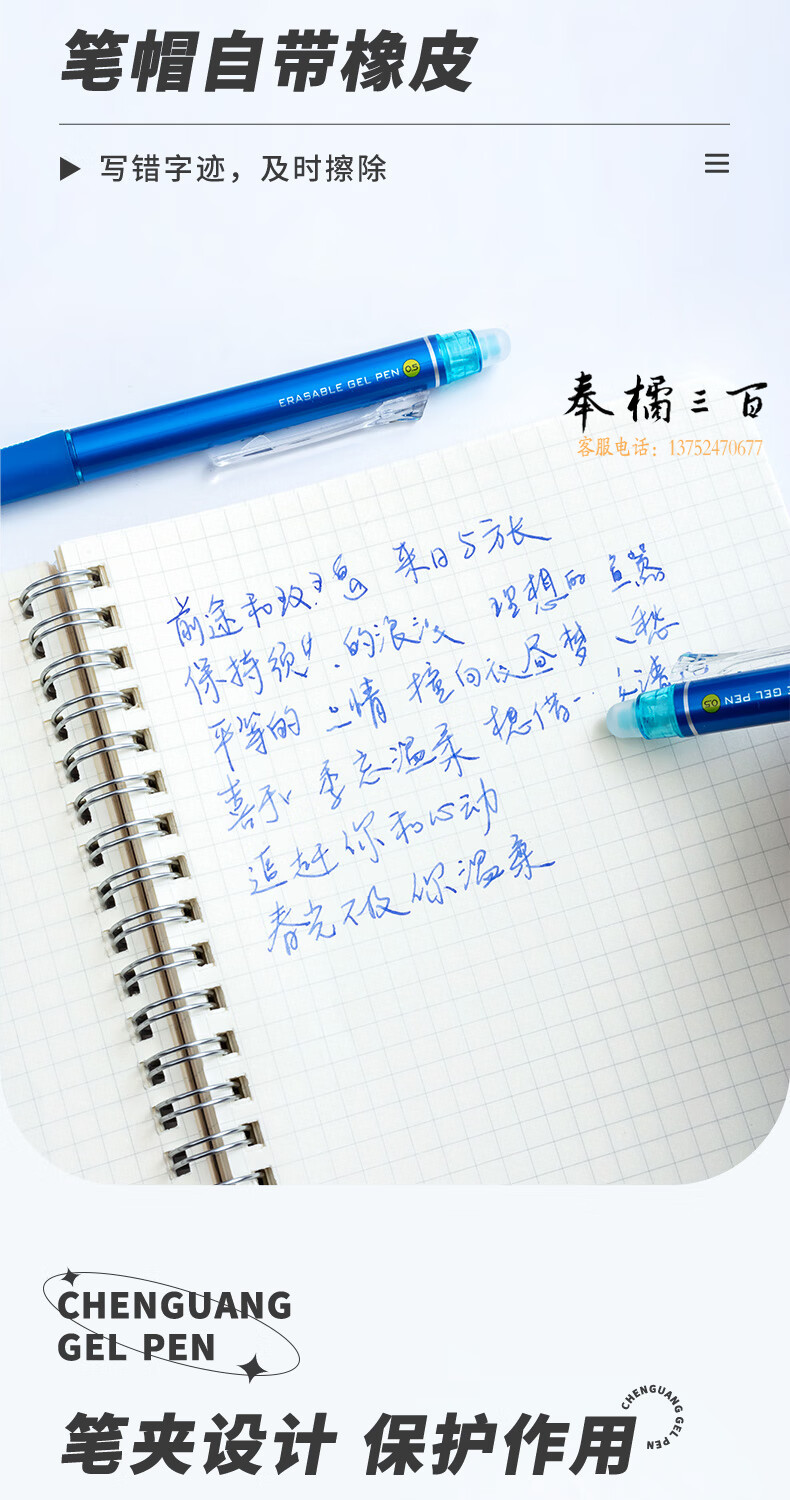 笔帽自带橡皮
写错字迹，及时擦除
ERASABLE GEL PEN 0.5
奉橘三百
客服电话：13752470677
前途和玫瑰 来日方长
保持 的浪漫 理想的
平等的 情 撞向 昼梦 愁
喜 忘温柔 想借
E GEL PEN 0.5
追赶你和心动
春光不及你温柔
CHENGUANG
GEL PEN
CHENGUANG GEL PEN
笔夹设计 保护作用